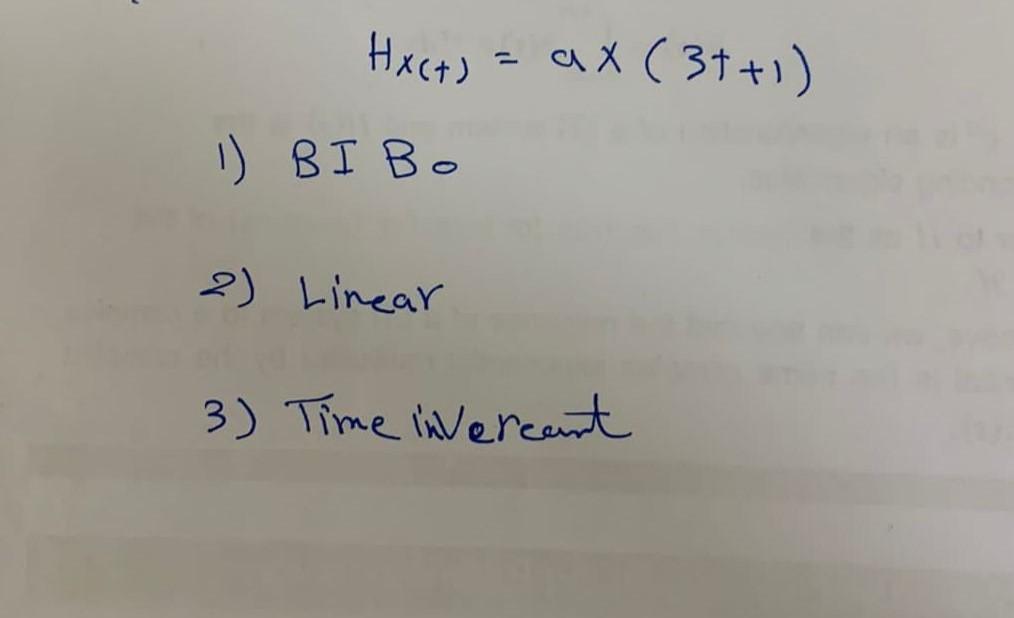 Hx(t) = ax (3t+1)
1) BIBo
2) Linear
3) Time inVercant